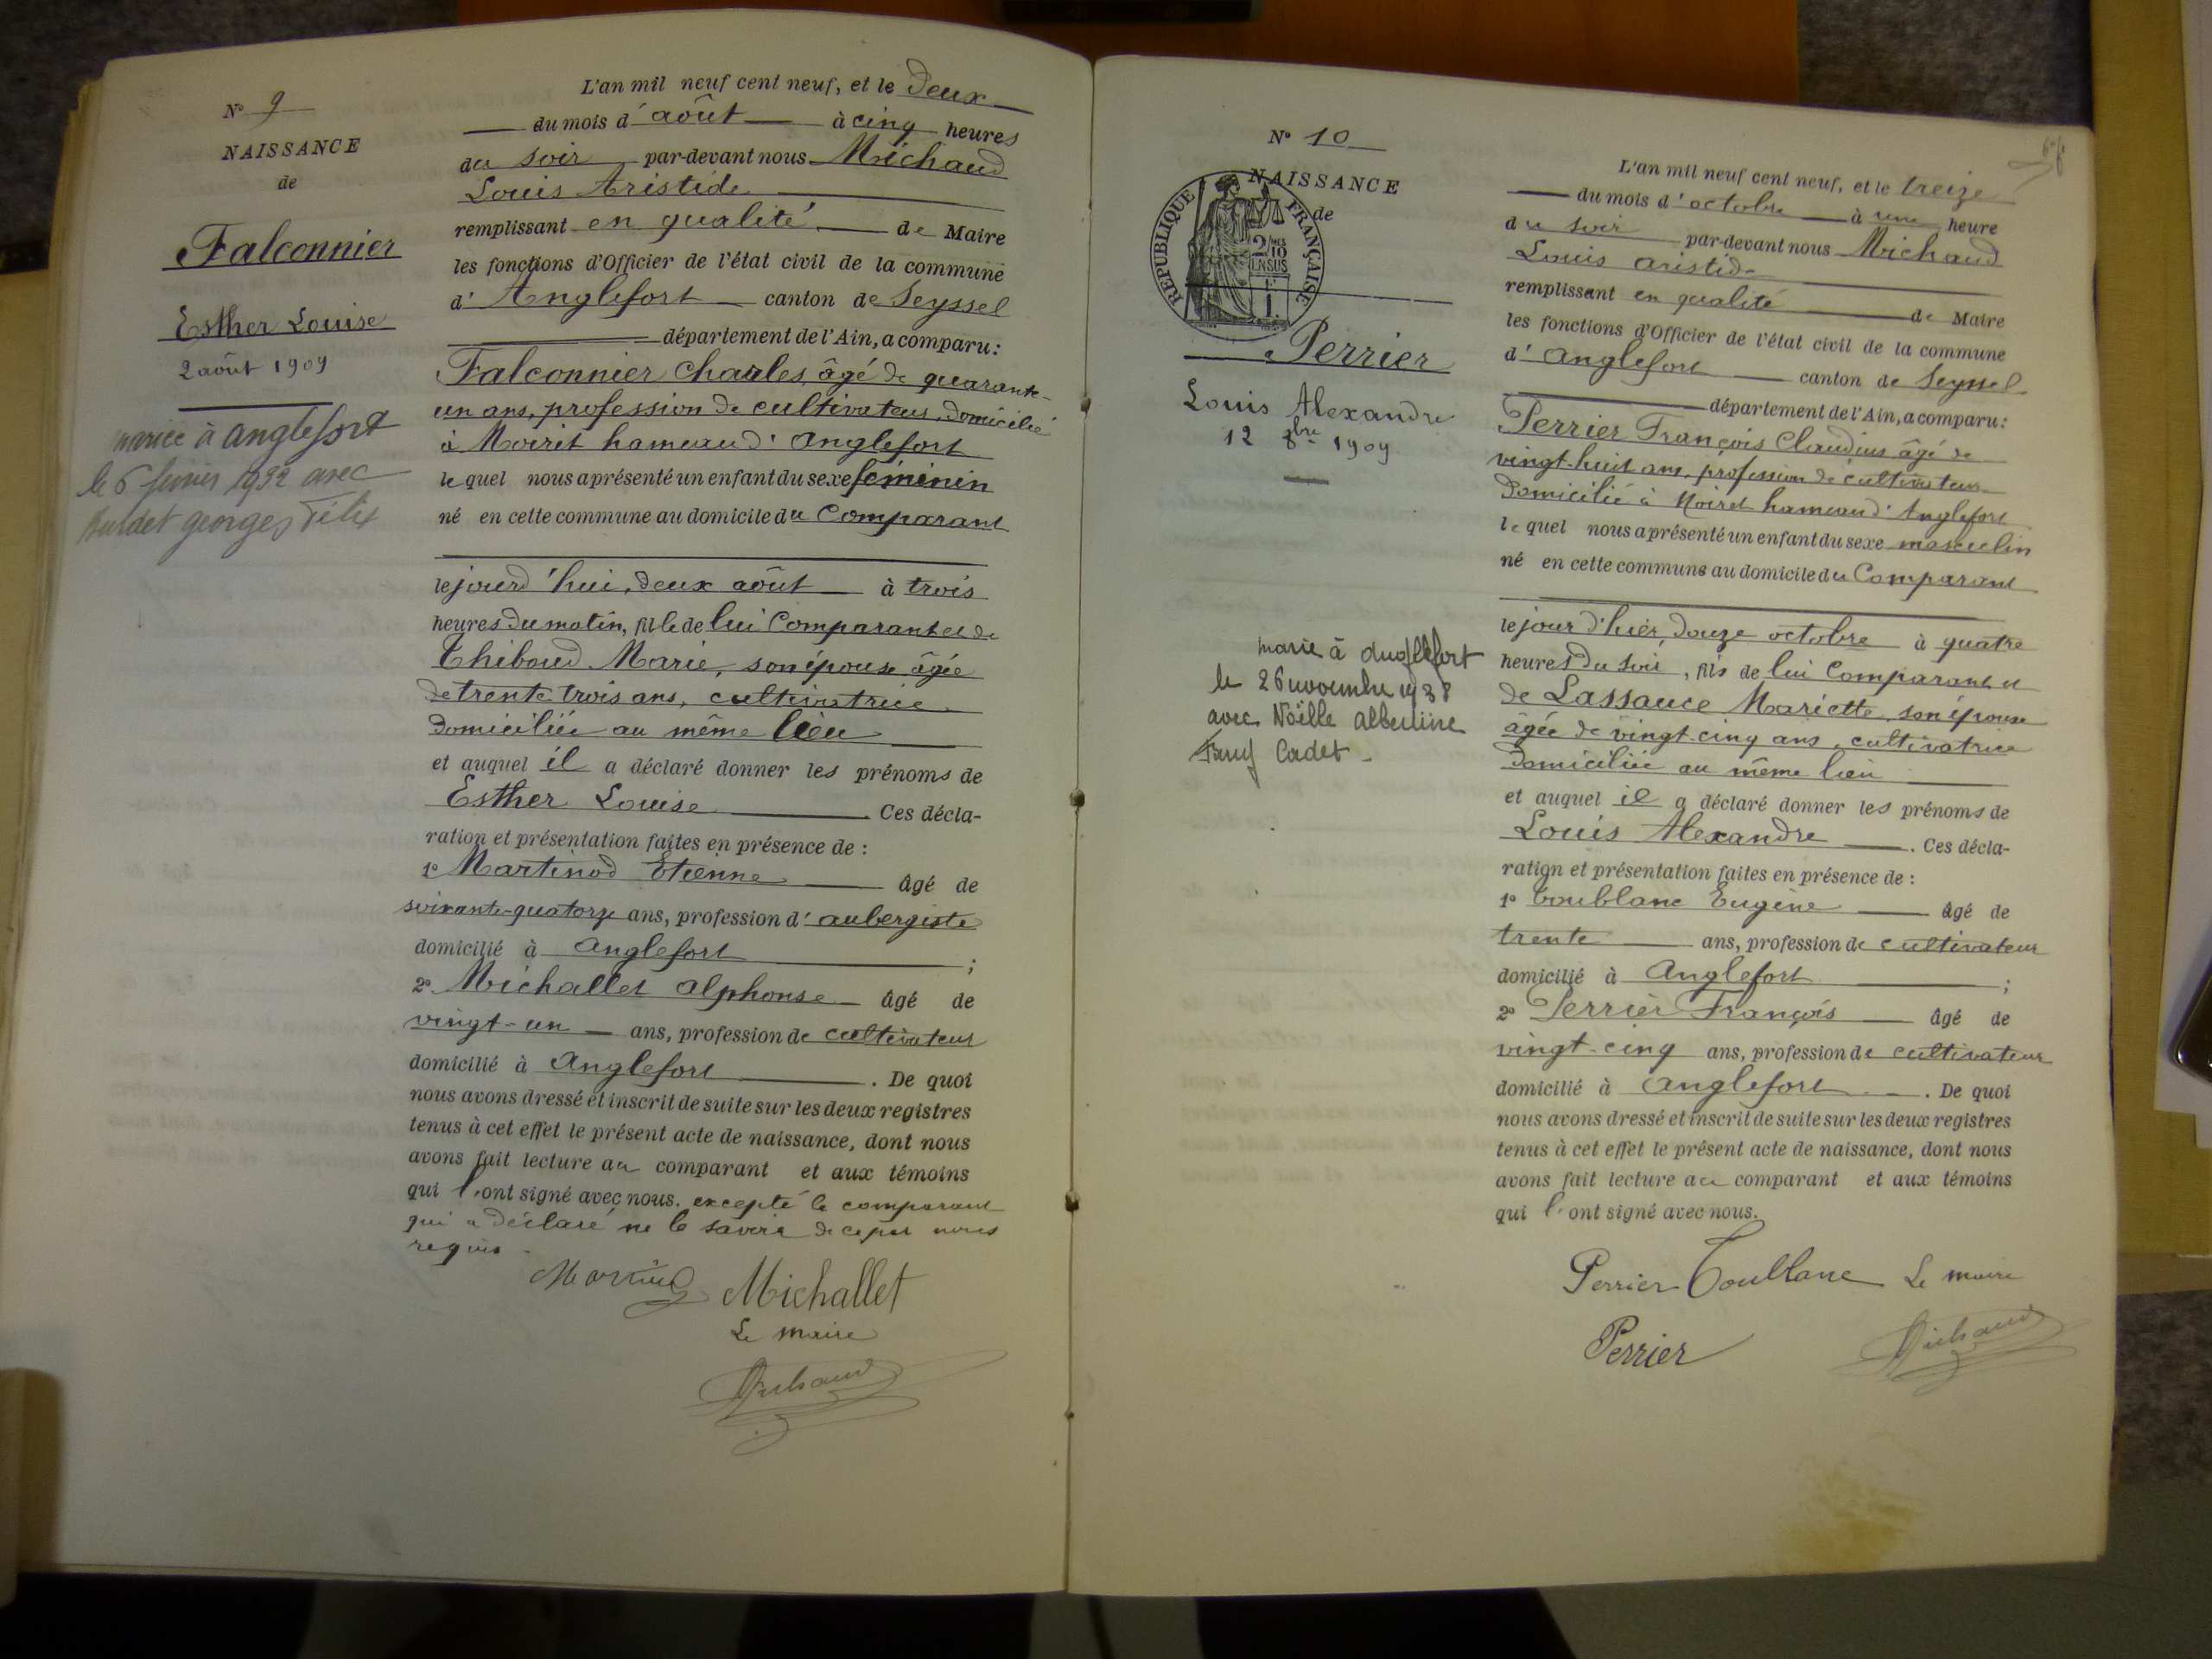 N° 9
NAISSANCE
de
Falconnier
Esther Louise
2 août 1909
mariée à anglefort
le 6 février 1932 avec
georges Félix
L'an mil neuf cent neuf, et le deux
du mois d'août à cinq heures
du soir par-devant nous Michaud
Louis Aristide
remplissant en qualité de Maire
les fonctions d'Officier de l'état civil de la commune
d'Anglefort canton de Seyssel
département de l'Ain, a comparu:
Falconnier Charles, âgé de quarante-
un ans, profession de cultivateur, domicilié
à Moiret hameau d'Anglefort
lequel nous a présenté un enfant du sexe féminin
né en cette commune au domicile du Comparant
le jourd'hui, deux août à trois
heures du matin, fille de lui Comparant et de
Thiboud Marie, son épouse âgée
de trente trois ans, cultivatrice
domiciliée au même lieu
et auquel il a déclaré donner les prénoms de
Esther Louise Ces décla-
ration et présentation faites en présence de :
1° Martinod Etienne âgé de
soixante-quatorze ans, profession d'aubergiste
domicilié à Anglefort ;
2° Michallet alphonse âgé de
vingt-un ans, profession de cultivateur
domicilié à Anglefort. De quoi
nous avons dressé et inscrit de suite sur les deux registres
tenus à cet effet le présent acte de naissance, dont nous
avons fait lecture au comparant et aux témoins
qui l'ont signé avec nous. excepté le comparant
qui a déclaré ne le savoir de ce par nous
requis
Martinod Michallet
Le maire
Michaud
N° 10
NAISSANCE
de
REPUBLIQUE FRANÇAISE
2/10 EN SUS
Perrier
Louis Alexandre
12 8bre 1909
marié à Anglefort
le 26 novembre 1938
avec Noëlle Albertine
Cadet
L'an mil neuf cent neuf, et le treize
du mois d'octobre à une heure
du soir par-devant nous Michaud
Louis aristide
remplissant en qualité de Maire
les fonctions d'Officier de l'état civil de la commune
d'Anglefort canton de Seyssel
département de l'Ain, a comparu:
Perrier François Claudius âgé de
vingt-huit ans, profession de cultivateur
domicilié à Moiret hameau d'Anglefort
lequel nous a présenté un enfant du sexe masculin
né en cette commune au domicile du Comparant
le jour d'hier, douze octobre à quatre
heures du soir, fils de lui Comparant et
de Lassauce Mariette, son épouse
âgée de vingt-cinq ans, cultivatrice
domiciliée au même lieu
et auquel il a déclaré donner les prénoms de
Louis Alexandre. Ces décla-
ration et présentation faites en présence de :
1° Toublanc Eugène âgé de
trente ans, profession de cultivateur
domicilié à Anglefort ;
2° Perrier François âgé de
vingt-cinq ans, profession de cultivateur
domicilié à Anglefort. De quoi
nous avons dressé et inscrit de suite sur les deux registres
tenus à cet effet le présent acte de naissance, dont nous
avons fait lecture au comparant et aux témoins
qui l'ont signé avec nous.
Perrier Toublanc Le maire
Perrier Michaud